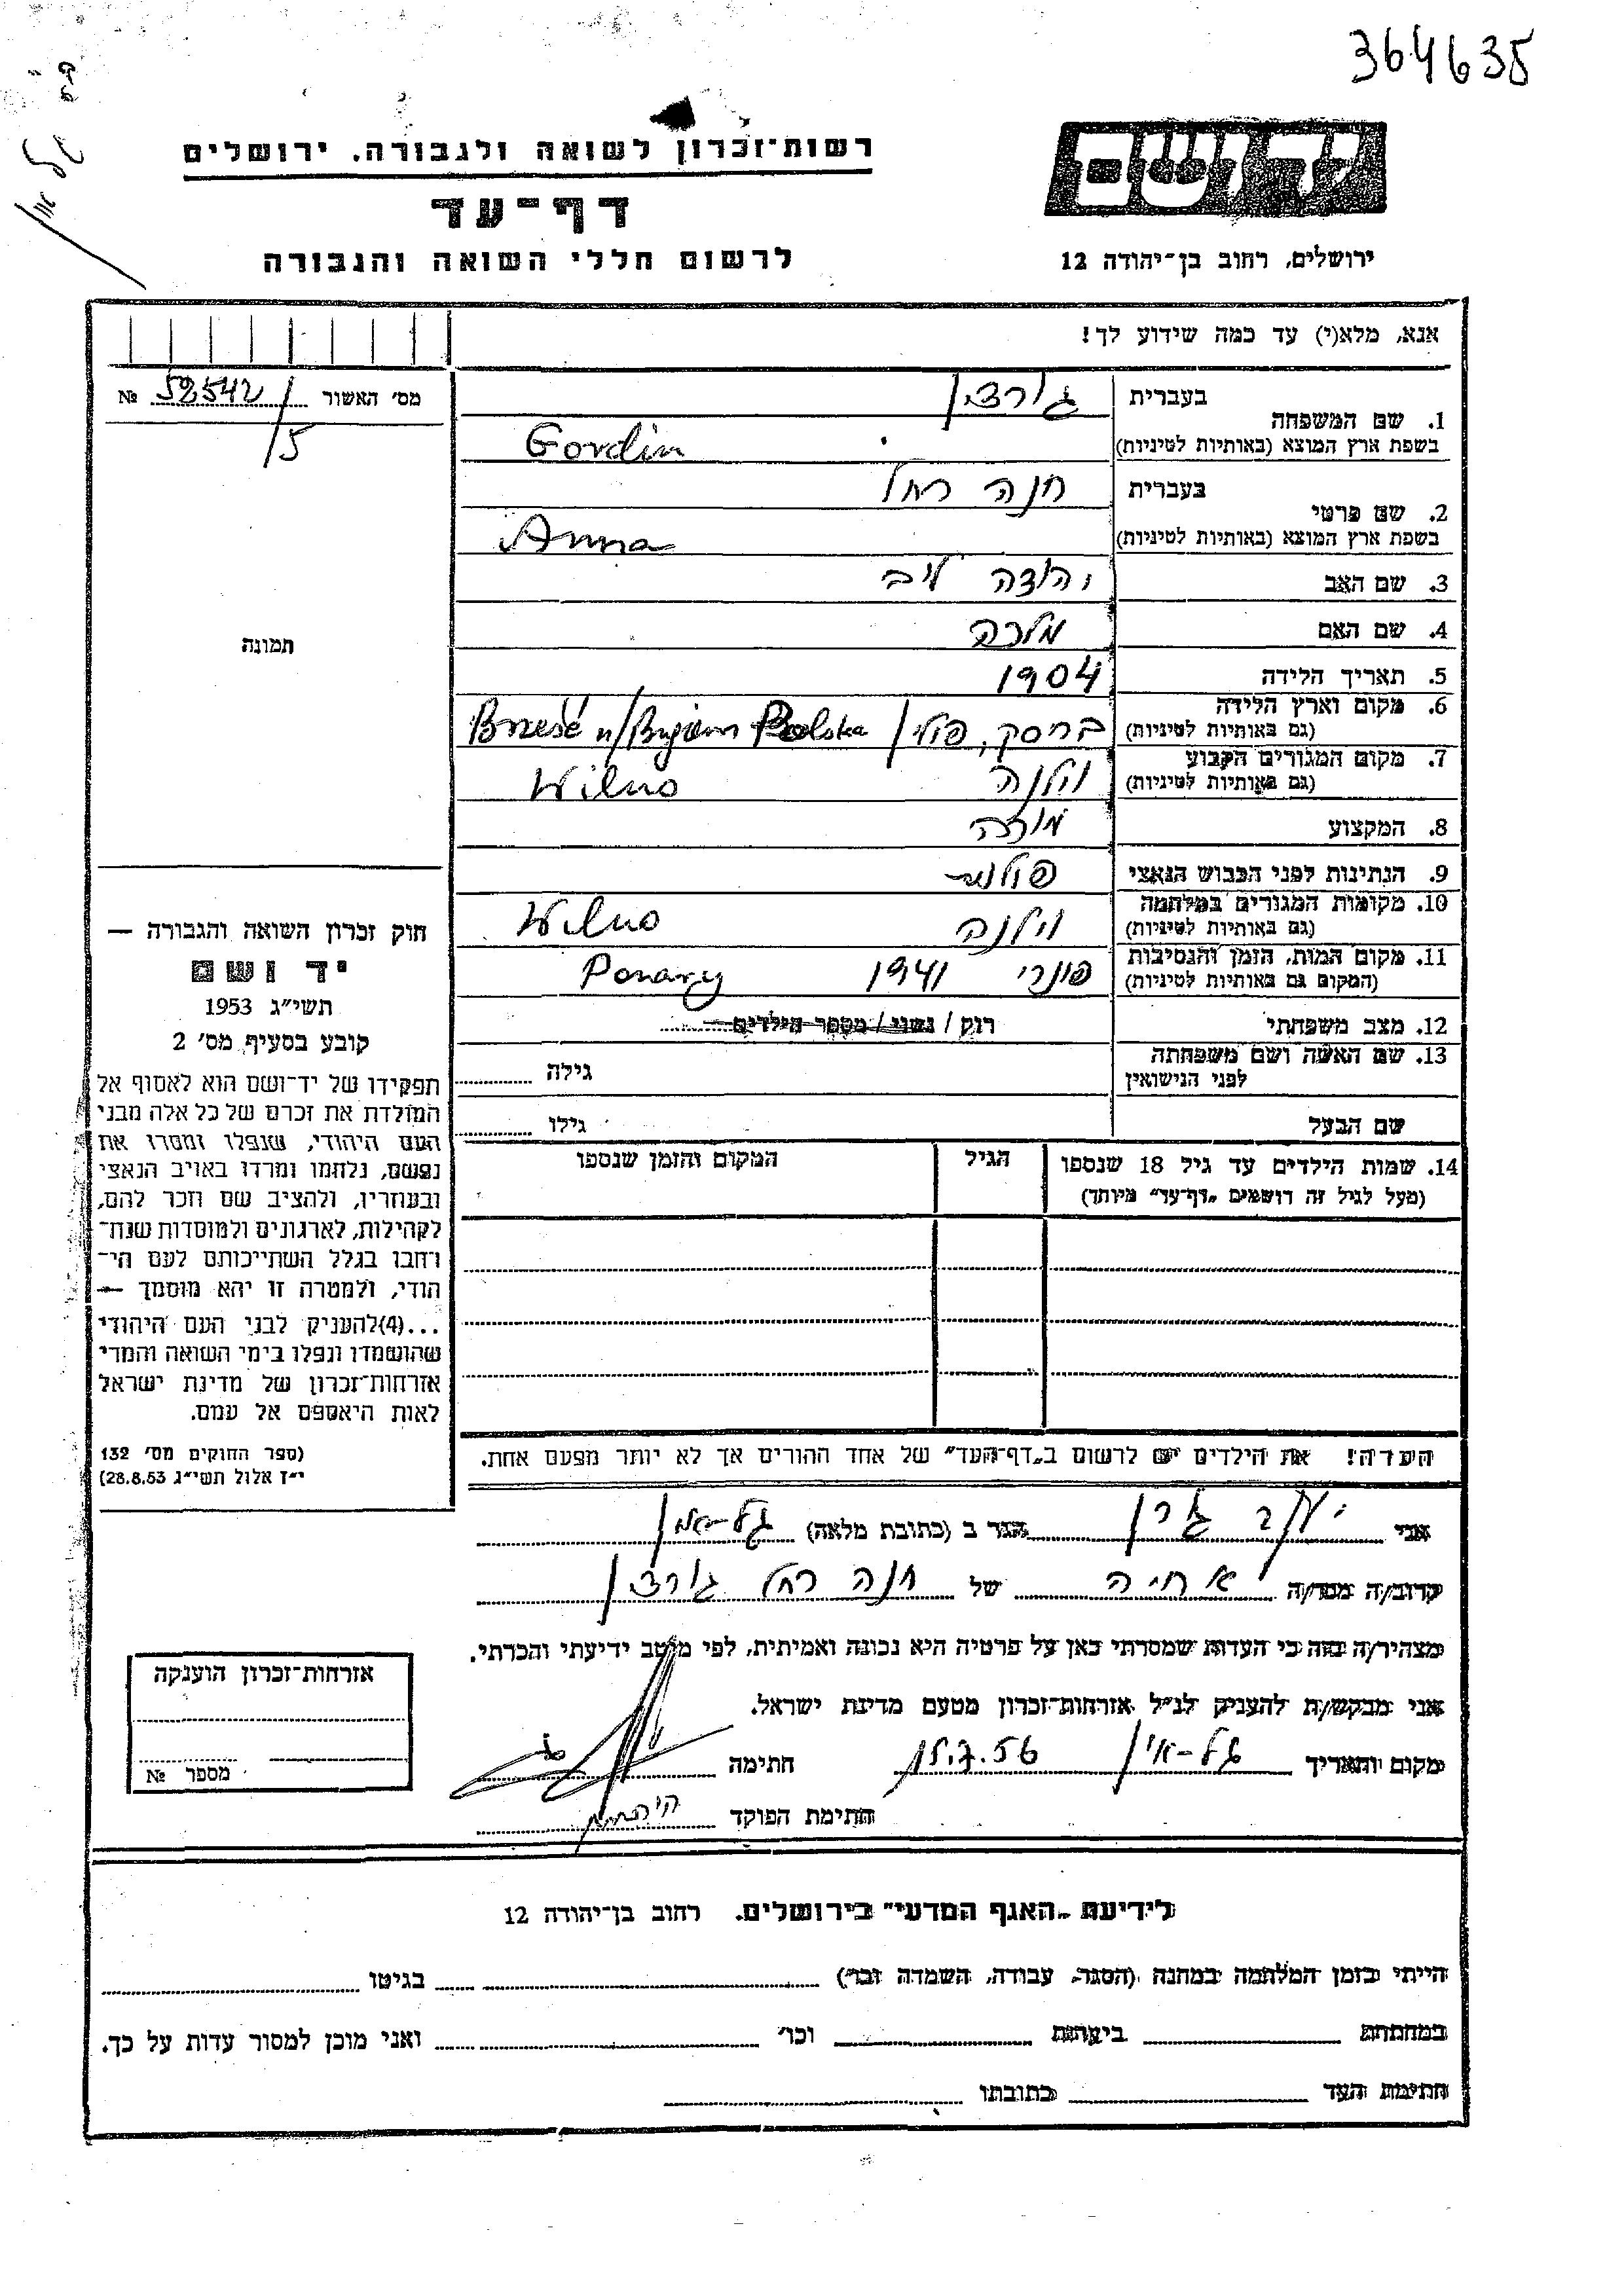 364635
רשות־זכרון לשואה ולגבורה. ירושלים
יד ושם
דף־עד
לרשום חללי השואה והגבורה
ירושלים, רחוב בן־יהודה 12
אנא, מלא(י) עד כמה שידוע לך!
מס׳ האשור 52542 №
/5
1. שם המשפחה
בעברית גורדין
בשפת ארץ המוצא (באותיות לטיניות) Gordin
2. שם פרטי
בעברית חנה רחל
בשפת ארץ המוצא (באותיות לטיניות) Anna
3. שם האב יהודה ליב
4. שם האם מלכה
תמונה
5. תאריך הלידה 1904
6. מקום וארץ הלידה
(גם באותיות לטיניות) בריסק, פולין Brześć n/Bugiem Polska
7. מקום המגורים הקבוע
(גם באותיות לטיניות) וילנה Wilno
8. המקצוע מורה
9. הנתינות לפני הכבוש הנאצי פולנית
10. מקומות המגורים במלחמה
(גם באותיות לטיניות) וילנה Wilno
11. מקום המות, הזמן והנסיבות
(המקום גם באותיות לטיניות) פונרי 1941 Ponary
12. מצב משפחתי רוק / נשוי / מספר הילדים
13. שם האשה ושם משפחתה
לפני הנישואין גילה
שם הבעל גילו
14. שמות הילדים עד גיל 18 שנספו
(מעל לגיל זה רושמים „דף־עד״ מיוחד)
הגיל
המקום והזמן שנספו
חוק זכרון השואה והגבורה —
יד ושם
תשי״ג 1953
קובע בסעיף מס׳ 2
תפקידו של יד־ושם הוא לאסוף אל
המולדת את זכרם של כל אלה מבני
העם היהודי, שנפלו ומסרו את
נפשם, נלחמו ומרדו באויב הנאצי
ובעוזריו, ולהציב שם וזכר להם,
לקהילות, לארגונים ולמוסדות שנח־
רבו בגלל השתייכותם לעם הי־
הודי, ולמטרה זו יהא מוסמך —
...(4)להעניק לבני העם היהודי
שהושמדו ונפלו בימי השואה והמרי
אזרחות־זכרון של מדינת ישראל
לאות היאספם אל עמם.
(ספר החוקים מס׳ 132
י״ז אלול תשי״ג 28.8.53)
הערה! את הילדים יש לרשום ב„דף־העד״ של אחד ההורים אך לא יותר מפעם אחת.
אני יעקב גרין הגר ב (כתובת מלאה) גל-און
קרוב/ה מטר/ה אחיה של חנה רחל גורדין
מצהיר/ה בזה כי העדות שמסרתי כאן על פרטיה היא נכונה ואמיתית, לפי מיטב ידיעתי והכרתי.
אני מבקש/ת להעניק לנ״ל אזרחות־זכרון מטעם מדינת ישראל.
מקום ותאריך גל-און 15.7.56 חתימה
חתימת הפוקד
אזרחות־זכרון הוענקה
מספר №
לידיעת „האגף המדעי״ בירושלים. רחוב בן־יהודה 12
הייתי בזמן המלחמה במחנה (הסגר, עבודה, השמדה וכר׳) בגיטו
במחתרת ביערות וכר׳ ואני מוכן למסור עדות על כך.
חתימת העד כתובתו